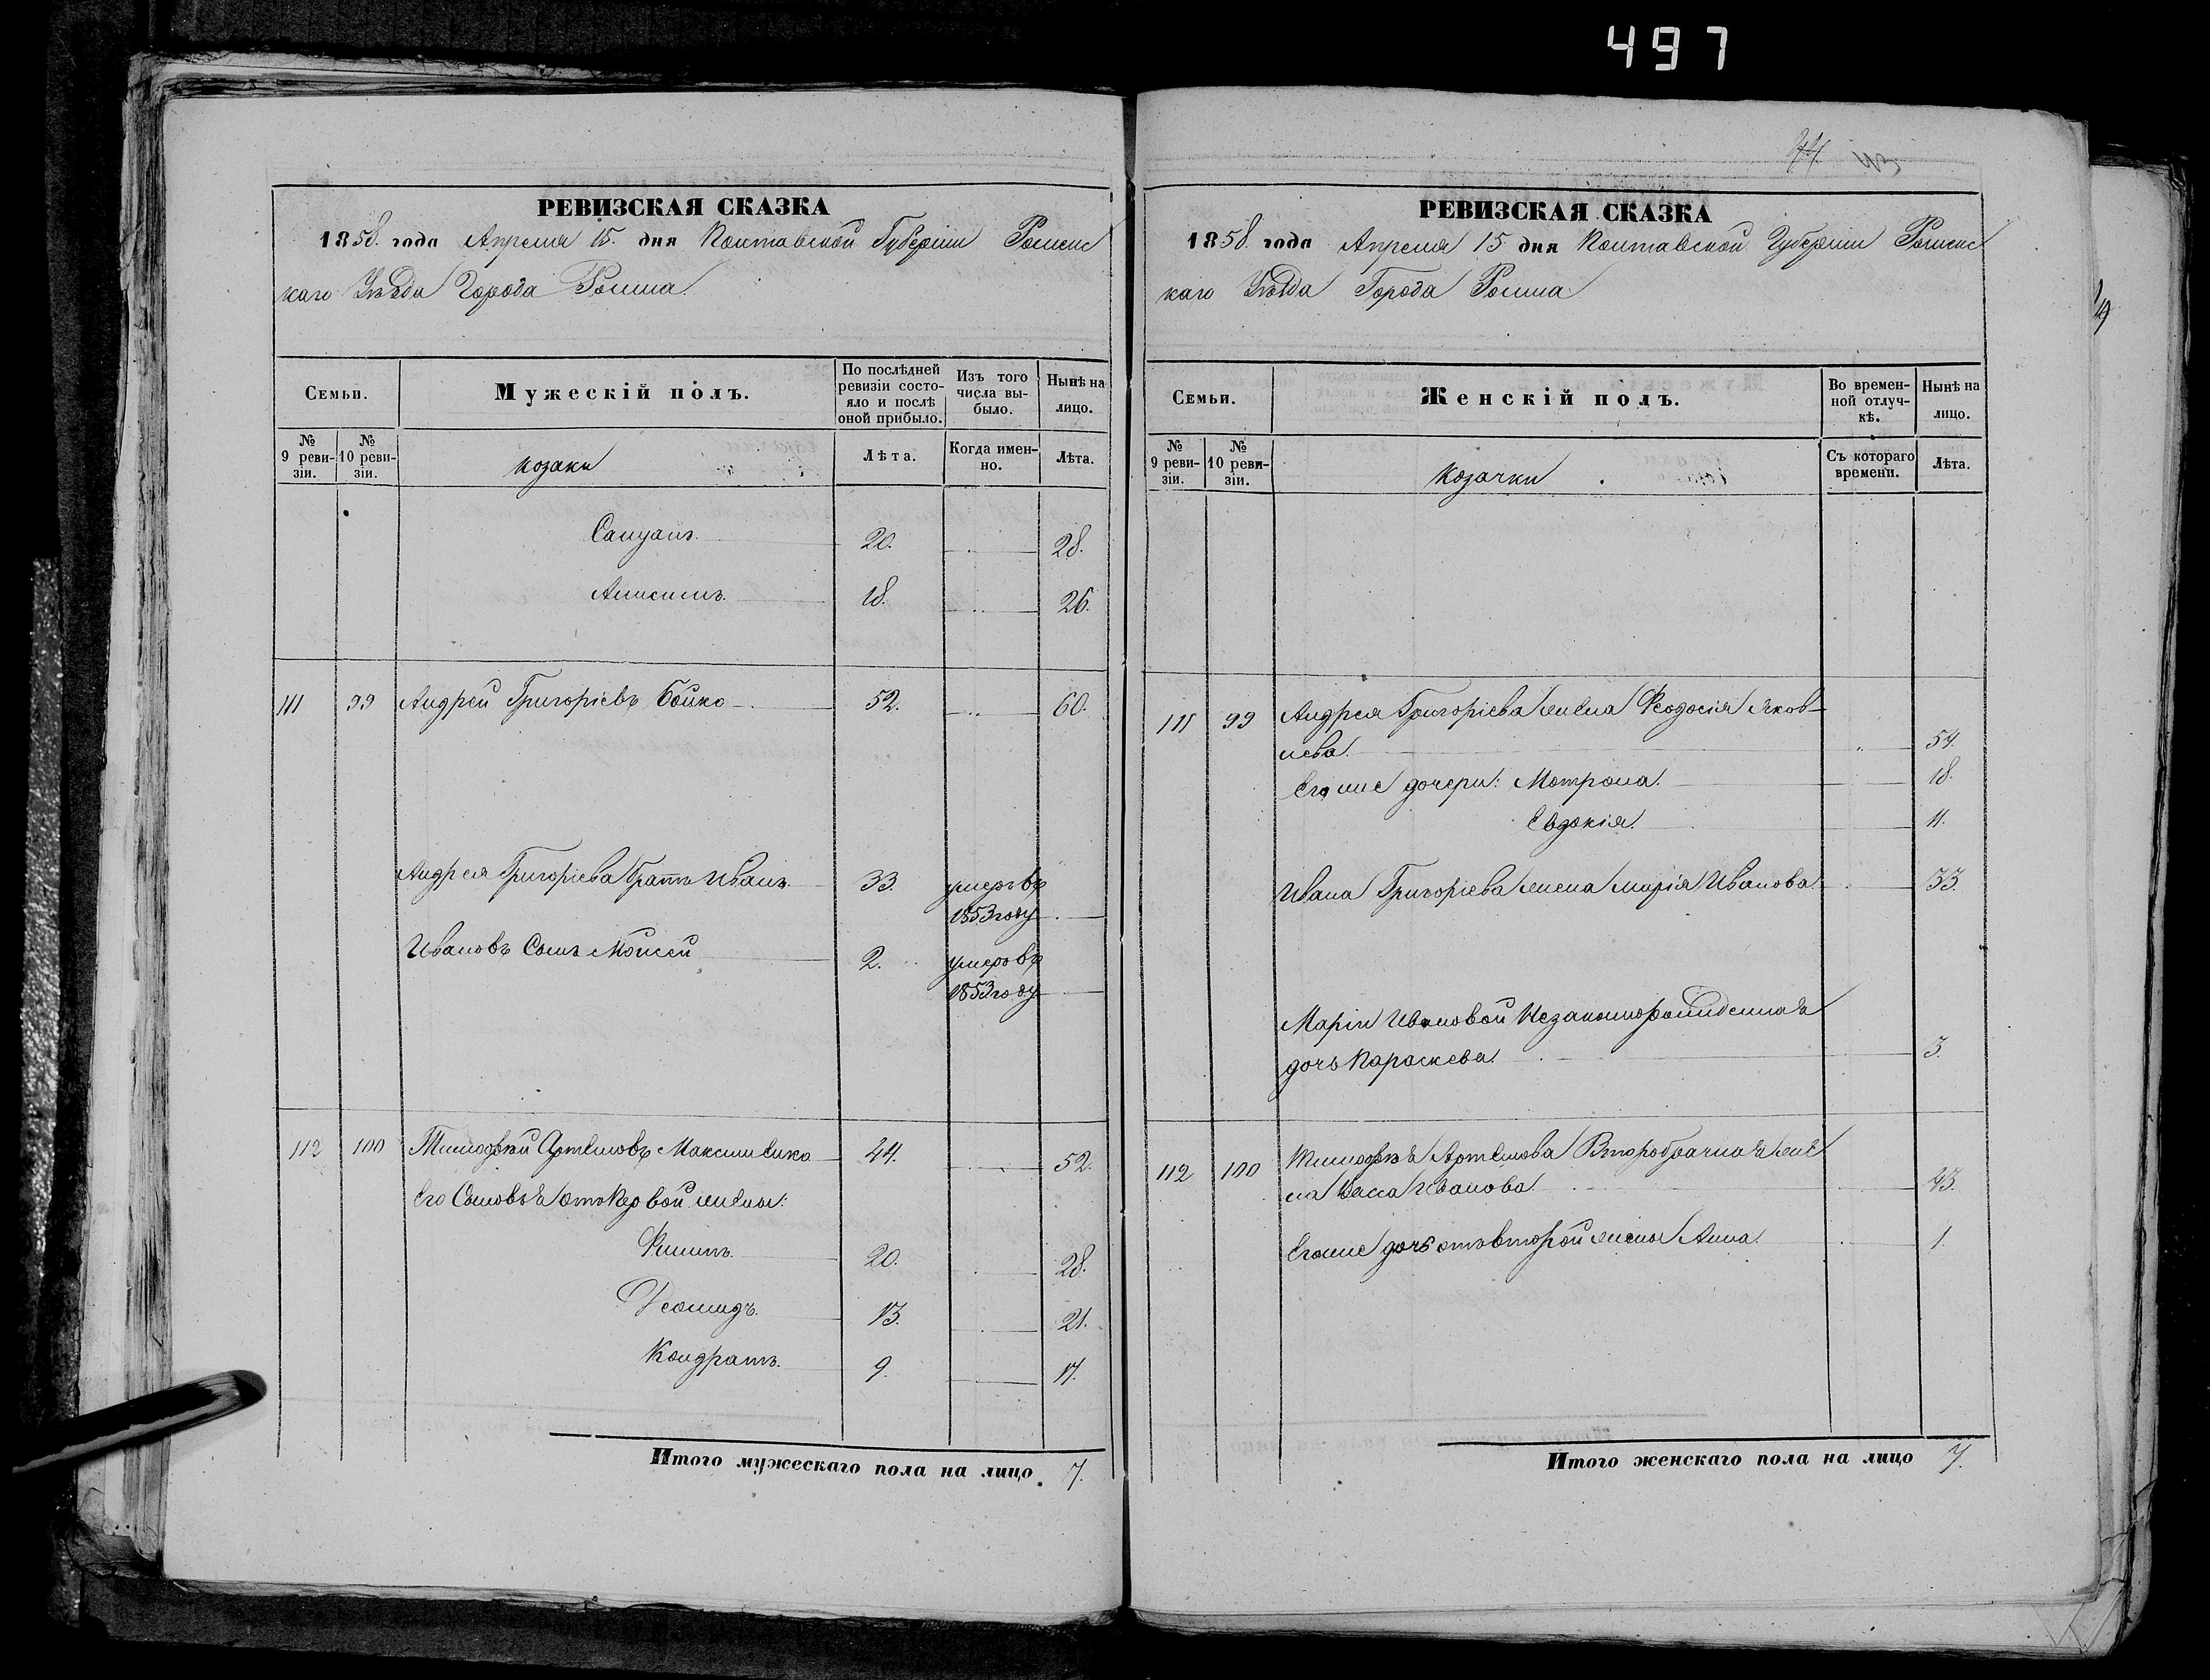 497
РЕВИЗСКАЯ СКАЗКА
1858. года Апреля 15. дня Полтавской Губерніи Роменс
каго Уѣзда Города Ромна.
Семьи.
Мужескій полъ.
По послѣдней
ревизіи состо-
яло и послѣ
оной прибыло.
Изъ того
числа вы-
было.
Нынѣ на
лицо.
№
9 реви-
зіи.
№
10 реви-
зіи.
козаки
Лѣта.
Когда имен-
но.
Лѣта.
Самуилъ. 20. 28.
Анисимъ. 18. 26.
111 99 Андрей Григоріевъ Бойко 52. 60.
Андрея Григоріева братъ Иванъ. 33. умеръ въ
1853 году
Ивановъ Сынъ Моисей 2. умеръ въ
1853 году
112 100 Тимофѣй Артемовъ Максименко 44. 52.
Его Сыновья отъ первой жены:
Филипъ. 20. 28.
Леонидъ. 13. 21.
Кондратъ. 9. 17.
Итого мужескаго пола на лицо 7.
44. 43
РЕВИЗСКАЯ СКАЗКА
1858. года Апреля 15 дня Полтавской Губерніи Роменс
каго Уѣзда Города Ромна
Семьи.
Женскій полъ.
Во времен-
ной отлуч-
кѣ.
Нынѣ на
лицо.
№
9 реви-
зіи.
№
10 реви-
зіи.
козачки
Съ котораго
времени.
Лѣта.
111 99 Андрея Григоріева жена Феодосія Яков-
лева. 54.
Его же дочери: Мотрона. 18.
Евдокія. 11.
Ивана Григоріева жена Марія Иванова. 33.
Маріи Ивановой Незаконнорожденная
дочь Параскева. 3.
112 100 Тимофѣя Артемова Второбрачная же
на Васса Иванова. 43.
Его же дочь отъ второй жены Анна 1.
Итого женскаго пола на лицо 7.